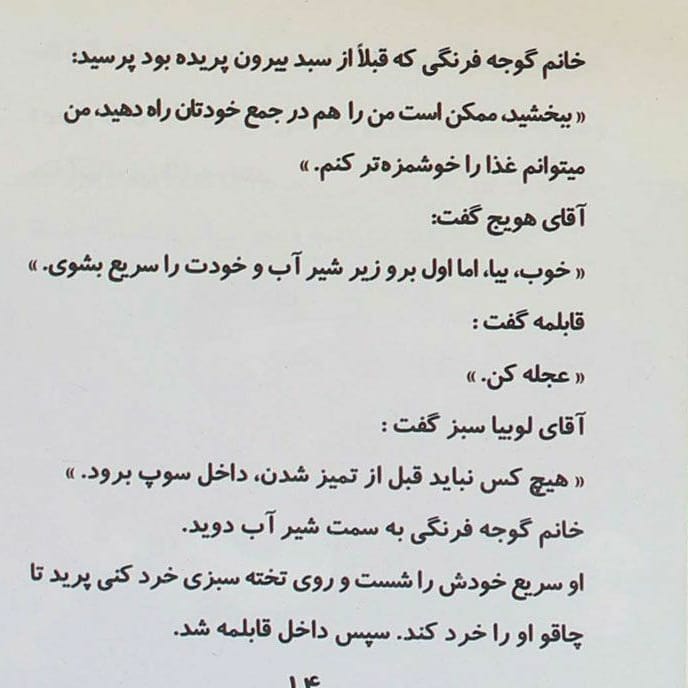 خانم گوجه فرنگی که قبلاً از سبد بیرون پریده بود پرسید:
« ببخشید، ممکن است من را هم در جمع خودتان راه دهید، من
میتوانم غذا را خوشمزه‌تر کنم. »
آقای هویج گفت:
« خوب، بیا، اما اول برو زیر شیر آب و خودت را سریع بشوی. »
قابلمه گفت :
« عجله کن. »
آقای لوبیا سبز گفت :
« هیچ کس نباید قبل از تمیز شدن، داخل سوپ برود. »
خانم گوجه فرنگی به سمت شیر آب دوید.
او سریع خودش را شست و روی تخته سبزی خرد کنی پرید تا
چاقو او را خرد کند. سپس داخل قابلمه شد.
۱۴